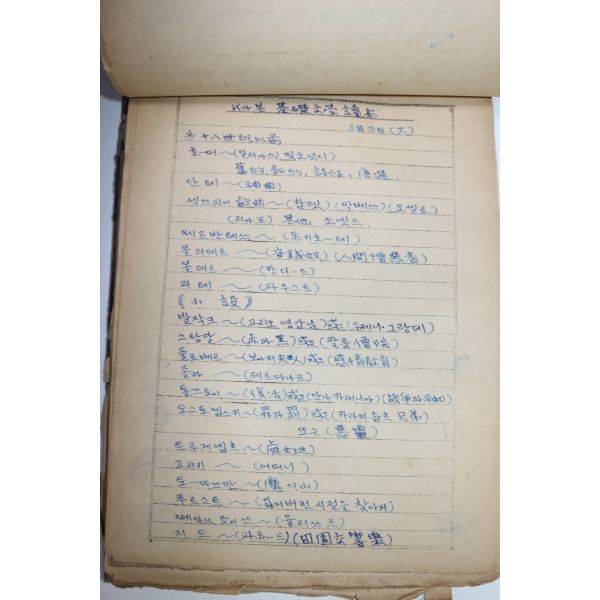 基礎文學讀本
月 日 (火)
十八世紀以前
호-머 ~ (일리아드, 오딧시)
舊約, 新約, 詩經, 唐選.
단테 ~ (神曲)
쎅쓰피어 戱曲 ~ (함렛) (막베쓰) (오셀로)
(리아王) 其他 소넷드.
쎄르반테쓰 ~ (돈키호-테)
몰리에르 ~ (守錢奴) (人間憎惡者)
볼테르 ~ (칸디-드)
괴테 ~ (파우스트)
《小說》
발작크 ~ (고리오 영감님) 或은 (우제니·그랑데)
스탕달 ~ (赤과 黑) 或은 (팔름僧院)
플로베르 ~ (보바리夫人) 或은 (感情敎育)
졸라 ~ (제르미나르)
톨쓰토이 ~ (復活) 或은 (안나 카레니나) (战争과 平和)
도스토엡스키 ~ (罪와 罰) 或은 (카라마좁흐 兄弟)
또는 (悪靈)
트루게넵흐 ~ (處女地)
고리키 ~ (어머니)
토-마쓰만 ~ (魔의山)
푸르스트 ~ (잃어버린 시절을 찾아서)
쩨임쓰 죠이쓰 ~ (율리쓰즈)
지드 ~ (田園交響樂)